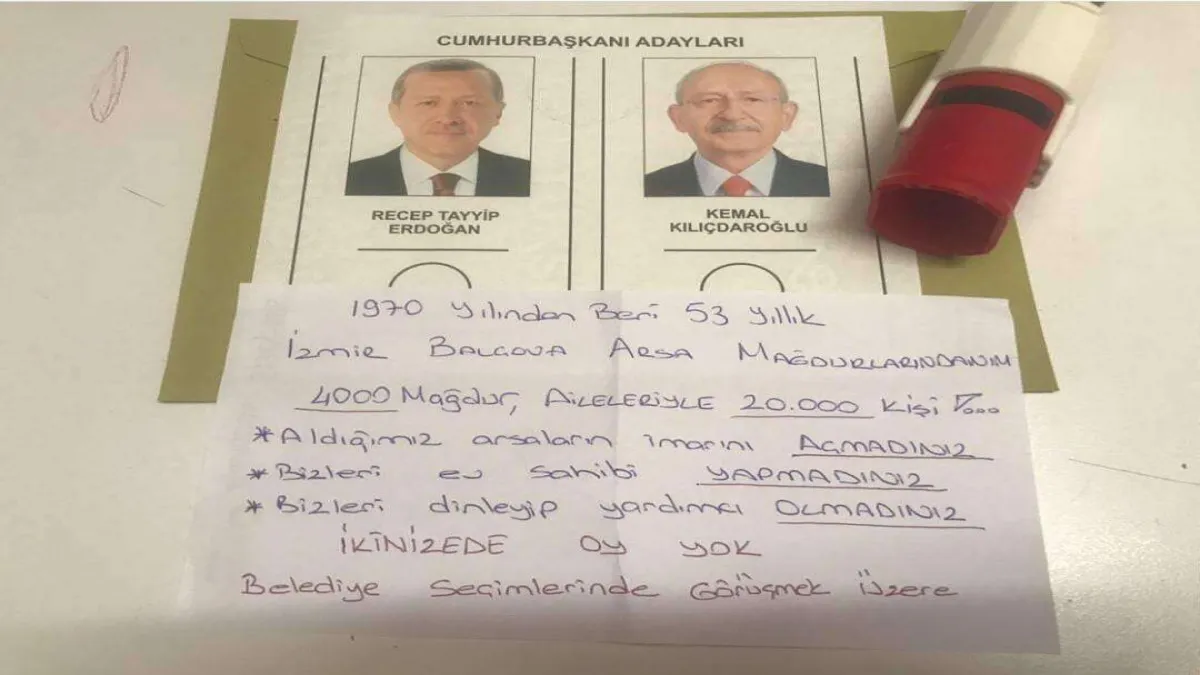 CUMHURBAŞKANI ADAYLARI
RECEP TAYYİP
ERDOĞAN
KEMAL
KILIÇDAROĞLU
1970 Yılından Beri 53 yıllık
İzmir BALÇOVA ARSA MAĞDURLARINDANIM
4000 Mağdur, AİLELERİYLE 20.000 Kişi
*Aldığımız arsaların imarını AÇMADINIZ
*Bizleri ev sahibi YAPMADINIZ
*Bizleri dinleyip yardımcı OLMADINIZ
İKİNİZEDE OY YOK
Belediye Seçimlerinde Görüşmek Üzere